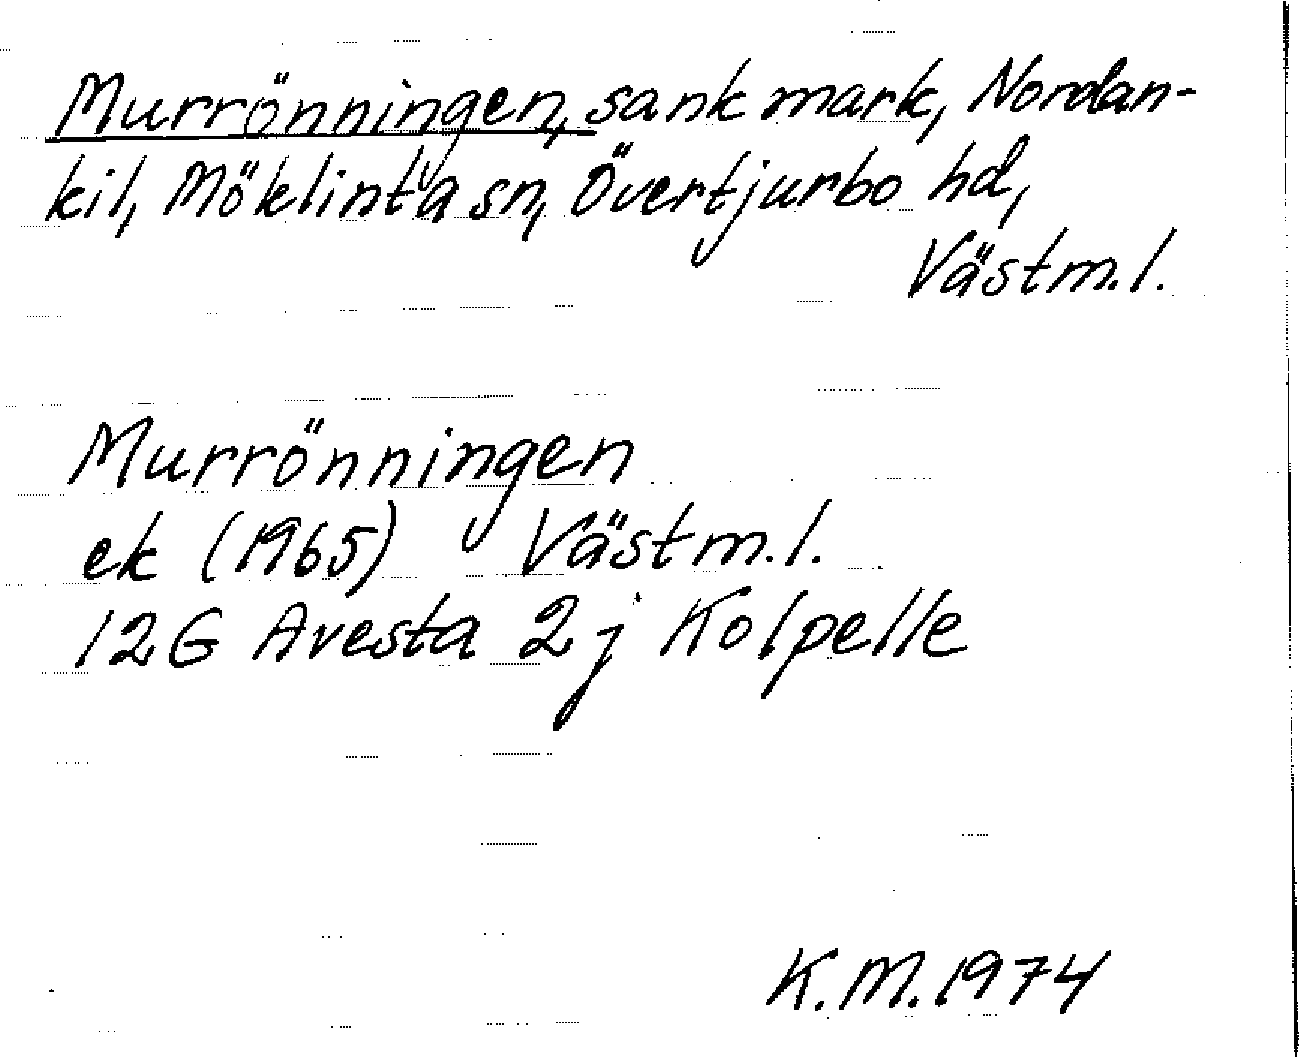 Murrönningen, sank mark, Nordan-
kil, Möklinta sn, Övertjurbo hd,
Västm.l.
Murrönningen
ek (1965) Västm.l.
12G Avesta 2j Kolpelle
K.M.1974